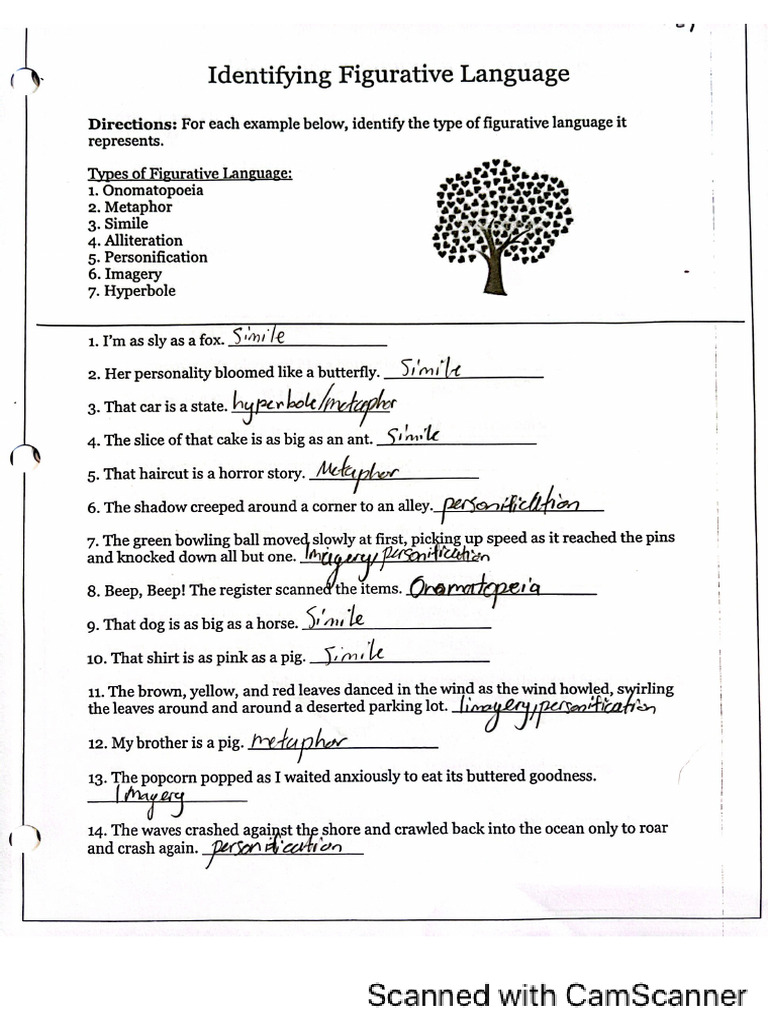 Identifying Figurative Language
Directions: For each example below, identify the type of figurative language it
represents.
Types of Figurative Language:
1. Onomatopoeia
2. Metaphor
3. Simile
4. Alliteration
5. Personification
6. Imagery
7. Hyperbole
1. I'm as sly as a fox. Simile
2. Her personality bloomed like a butterfly. Simile
3. That car is a state. hyperbole/metaphor
4. The slice of that cake is as big as an ant. Simile
5. That haircut is a horror story. Metaphor
6. The shadow creeped around a corner to an alley. personification
7. The green bowling ball moved slowly at first, picking up speed as it reached the pins
and knocked down all but one. Imagery, personification
8. Beep, Beep! The register scanned the items. Onamatopeia
9. That dog is as big as a horse. Simile
10. That shirt is as pink as a pig. Simile
11. The brown, yellow, and red leaves danced in the wind as the wind howled, swirling
the leaves around and around a deserted parking lot. Iimagery, personification
12. My brother is a pig. metaphor
13. The popcorn popped as I waited anxiously to eat its buttered goodness.
Imagery
14. The waves crashed against the shore and crawled back into the ocean only to roar
and crash again. personification
Scanned with CamScanner